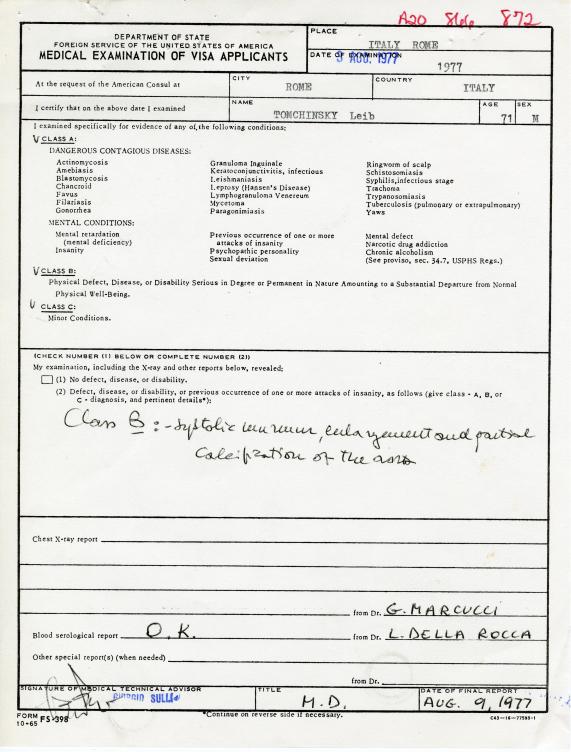 A20 866 872
DEPARTMENT OF STATE
FOREIGN SERVICE OF THE UNITED STATES OF AMERICA
MEDICAL EXAMINATION OF VISA APPLICANTS
PLACE
ITALY ROME
DATE OF EXAMINATION
9 AUG. 1977
1977
At the request of the American Consul at
CITY
ROME
COUNTRY
ITALY
I certify that on the above date I examined
NAME
TOMCHINSKY Leib
AGE
71
SEX
M
I examined specifically for evidence of any of the following conditions:
V CLASS A:
DANGEROUS CONTAGIOUS DISEASES:
Actinomycosis
Amebiasis
Blastomycosis
Chancroid
Favus
Filariasis
Gonorrhea
Granuloma Inguinale
Keratoconjunctivitis, infectious
Leishmaniasis
Leprosy (Hansen's Disease)
Lymphogranuloma Venereum
Mycetoma
Paragonimiasis
Ringworm of scalp
Schistosomiasis
Syphilis, infectious stage
Trachoma
Trypanosomiasis
Tuberculosis (pulmonary or extrapulmonary)
Yaws
MENTAL CONDITIONS:
Mental retardation
(mental deficiency)
Insanity
Previous occurrence of one or more
attacks of insanity
Psychopathic personality
Sexual deviation
Mental defect
Narcotic drug addiction
Chronic alcoholism
(See proviso, sec. 34.7, USPHS Regs.)
V CLASS B:
Physical Defect, Disease, or Disability Serious in Degree or Permanent in Nature Amounting to a Substantial Departure from Normal
Physical Well-Being.
V CLASS C:
Minor Conditions.
(CHECK NUMBER (1) BELOW OR COMPLETE NUMBER (2))
My examination, including the X-ray and other reports below, revealed:
(1) No defect, disease, or disability.
(2) Defect, disease, or disability, or previous occurrence of one or more attacks of insanity, as follows (give class - A, B, or
C - diagnosis, and pertinent details*):
Class B : - systolic murmur, enlargement and partial
calcification of the aorta
Chest X-ray report
from Dr. G. MARCUCCI
Blood serological report O.K. from Dr. L. DELLA ROCCA
Other special report(s) (when needed)
from Dr.
SIGNATURE OF MEDICAL TECHNICAL ADVISOR
SULLI
TITLE
M.D.
DATE OF FINAL REPORT
AUG. 9, 1977
FORM FS-398
10-65
*Continue on reverse side if necessary.
C43-16-77593-1